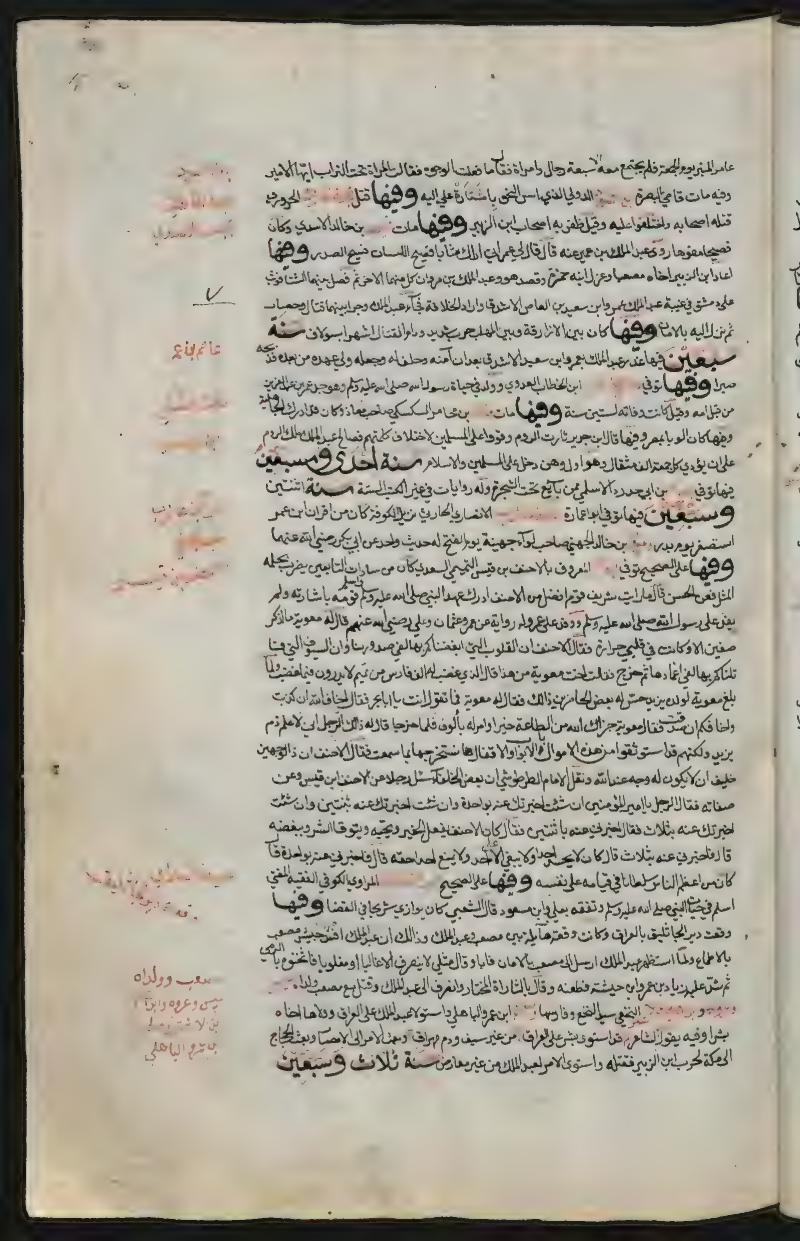 عامر المنبر يوم الجمعة فلم يجتمع معه الا سبعة رجال وامراة فقال ما فعلت الوجوه فقالت المراة تحت التراب ايها الامير
وفيه مات قاضي البصرة الدولي الذي اسس النحو باشارة علي اليه وفيها قتل
قتله اصحابه واختلفوا عليه وقيل ظفر به اصحاب ابن الزبير وفيها مات بن خالد الاسدي وكان
فصيحا مفوها روى عبد الملك بن عمير عنه قال قال لي عمر اني اراك شابا فصيح اللسان فسيح الصدر وفيها
اعاد ابن الزبير اخاه مصعبا وعزل ابنه حمزة وقصد هو وعبد الملك بن مروان كل منهما الاخر ثم فصل بينهما الشتا فوثب
على دمشق في غيبة عبد الملك عمرو ابن سعيد بن العاص الاشدق واراد الخلافة فجآء عبد الملك وجرا بينهما قتال وحصار
ثم نزل اليه بالامان وفيها كان بين الازارقة وبين المهلب حرب شديد ودام القتال اشهر بسولاف سنة
سبعين فيها غدر عبد الملك بعمرو ابن سعيد الاشدق بعد ان آمنه وحلف له وجعله ولي عهده من بعده
صبرا وفيها توفي ابن الخطاب العدوي وولد في حياة رسول الله صلى الله عليه وسلم وهو جد عمر بن عبد العزيز
من قبل امه وقيل كانت وفاته لستين سنة وفيها مات بن عامر السكسكي صاحب معاذ وكان قد ادرك الجاهلية
وفيها كان الوبا بمصر وفيها قال ابن جرير ثارت الروم وقووا على المسلمين لاختلاف كلمتهم فصالح عبد الملك ملك الروم
على ان يؤدي كل جمعة الف مثقال وهو اول وهن دخل على المسلمين والاسلام سنة احدى وسبعين
فيها توفي بن ابي حدرد الاسلمي ممن بايع تحت الشجرة وله روايات في غير الكتب الستة سنة اثنتين
وسبعين فيها توفي ابو عمارة الانصاري الحارثي نزيل الكوفة كان من اقران ابن عمر
استصغر يوم بدر بن خالد الجهني صاحب لوآء جهينة يوم الفتح له حديث واحد عن ابي بكر رضي الله عنهما
وفيها على الصحيح توفي المعروف بالاحنف بن قيس التميمي السعدي كان من سادات التابعين يضرب بحلمه
المثل فعن الحسن قال ما رايت شريف قوم افضل من الاحنف ادرك عهد النبي صلى الله عليه وسلم واسلم قومه باشارته ولم
يفد على رسول الله صلى الله عليه وسلم ووفد على عمر وله رواية عن عمر وعثمان وعلي رضي الله عنهم قال له معوية ما اذكر
صفين الا وكانت في قلبي حرارة فقال الاحنف ان القلوب التي ابغضناك بها لفي صدورنا وان السيوف التي قا
تلناك بها لفي اغمادها ثم خرج فقالت اخت معوية من هذا قال الذي غضب له الف فارس من تميم لا يدرون فيما غضب ولما
بلغ معوية لولده يزيد حسن له بعض الحاضرين ذالك فقال له معوية فما تقول انت يا ابا بحر فقال اخاف الله ان كذبت
واخافكم ان صدقت فقال معوية جزاك الله من الطاعة خيرا وامر له بألوف فلما خرجا قال له ذالك الرجل اني لاعلم ذم
يزيد ولكنهم قد استوثقوا من هذه الاموال بالابواب والاقفال ما نستخرجها الا بما سمعت فقال الاحنف ان ذا الوجهين
خليق ان لا يكون له وجه عند الله ونقل الامام الطرطوشي ان بعض الخلفآء سئل رجلا عن الاحنف ابن قيس وعن
صفاته فقال الرجل يا امير المؤمنين ان شئت اخبرتك عنه بواحدة وان شئت اخبرتك عنه بثنتين وان شئت
اخبرتك عنه بثلاث فقال اخبرني عنه باثنتين فقال كان الاحنف يفعل الخير ويحبه ويتوقا الشر ويبغضه
قال فاخبرني عنه بثلاث قال كان لا يحسد احدا ولا يبغي على احد ولا يمنع احدا حقه قال فاخبرني عنه بواحدة قال
كان من اعظم الناس سلطانا في قيامه على نفسه وفيها على الصحيح المراوي الكوفي الفقيه المفتي
اسلم في حياة النبي صلى الله عليه وسلم وتفقه بعلي وابن مسعود قال الشعبي كان يوازي شريحا في القضا وفيها
وقعت دير الجاثليق بالعراق وكانت وقعة هآئلة بين مصعب وعبد الملك وذالك ان عبد الملك افسد جيش مصعب
بالاطماع ولما استظهر عبد الملك ارسل الى مصعب بالامان فابا وقال مثلي لا ينصرف الا غالبا او مغلوبا فاثخنوه بالرمي
ثم شد عليه زياد بن عمرو ابن جيشته فطعنه وقال يا لثاراة المختار وانصرف الى عبد الملك وقتل مع مصعب ولداه
النخعي سيد النخع وفارسها ابن عمرو الباهلي واستولا عبد الملك على العراق وولاها اخاه
بشرا وفيه يقول الشاعر قد استوى بشر على العراق من غير سيف ودم مهراق وبعث الامرا الى الامصار وبعث الحجاج
الى مكة لحرب ابن الزبير فقتله واستوى الامر لعبد الملك من غير معارض سنة ثلاث وسبعين
٧
عاصم بن عمر
مصعب وولداه
الباهلي